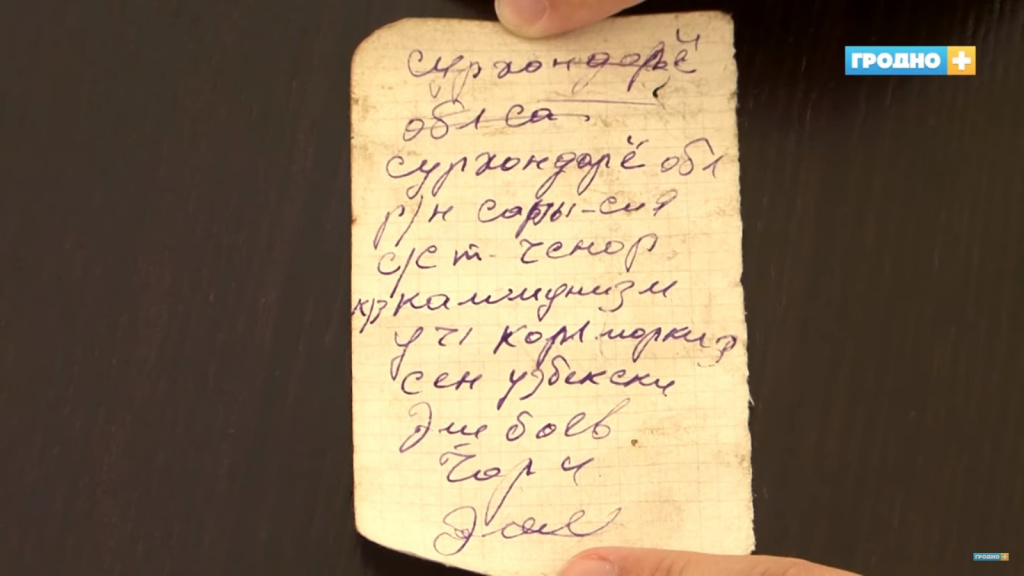 ГРОДНО +
сурхондарё
обл са
сурхондарё обл
р/н сары-сия
с/с т. Ченор
к/з каммунизм
уч
сен узбекски
Эшбоев
Чори
ГРОДНО +